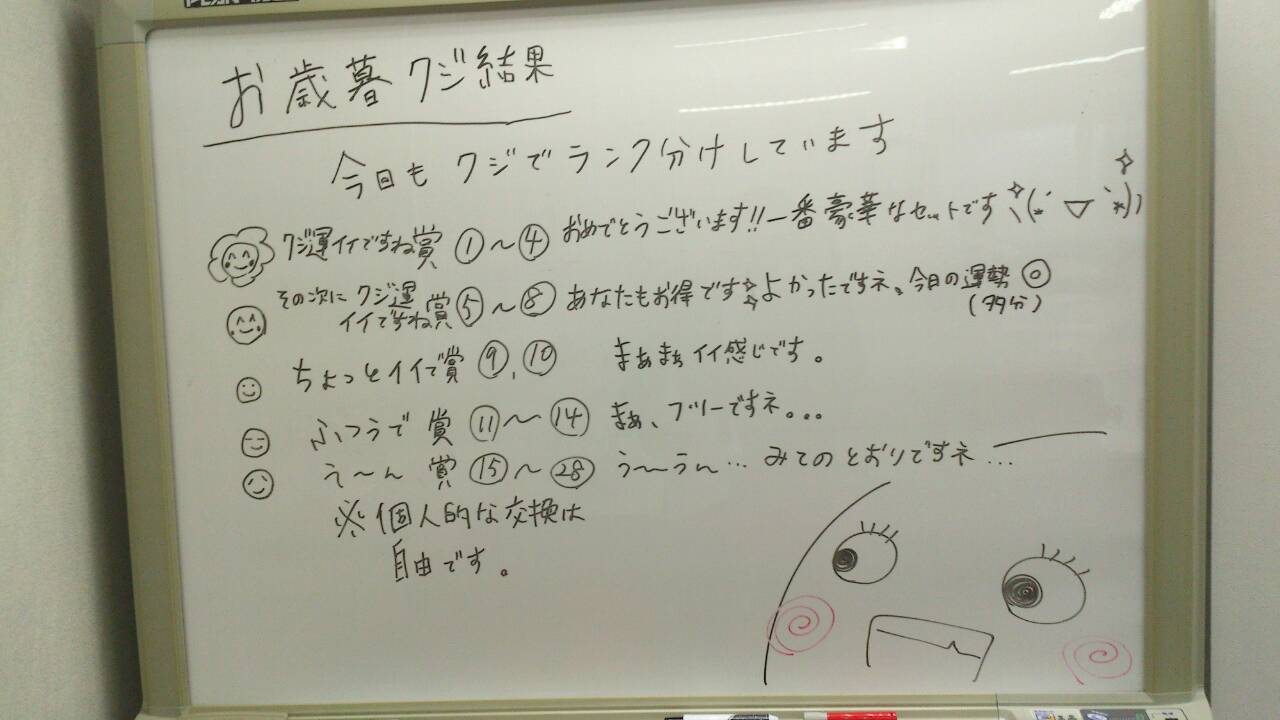 お歳暮クジ結果
今日もクジでランク分けしています
クジ運イイですね賞 ①～④ おめでとうございます!! 一番豪華なセットです
その次にクジ運
イイですね賞 ⑤～⑧ あなたもお得です よかったですネ。今日の運勢◎
(多分)
ちょっとイイで賞 ⑨,⑩ まぁまぁイイ感じです。
ふつうで賞 ⑪～⑭ まぁ、フツーですネ。。。
う～ん賞 ⑮～㉘ う～うん… みてのとおりですネ…
※個人的な交換は
自由です。